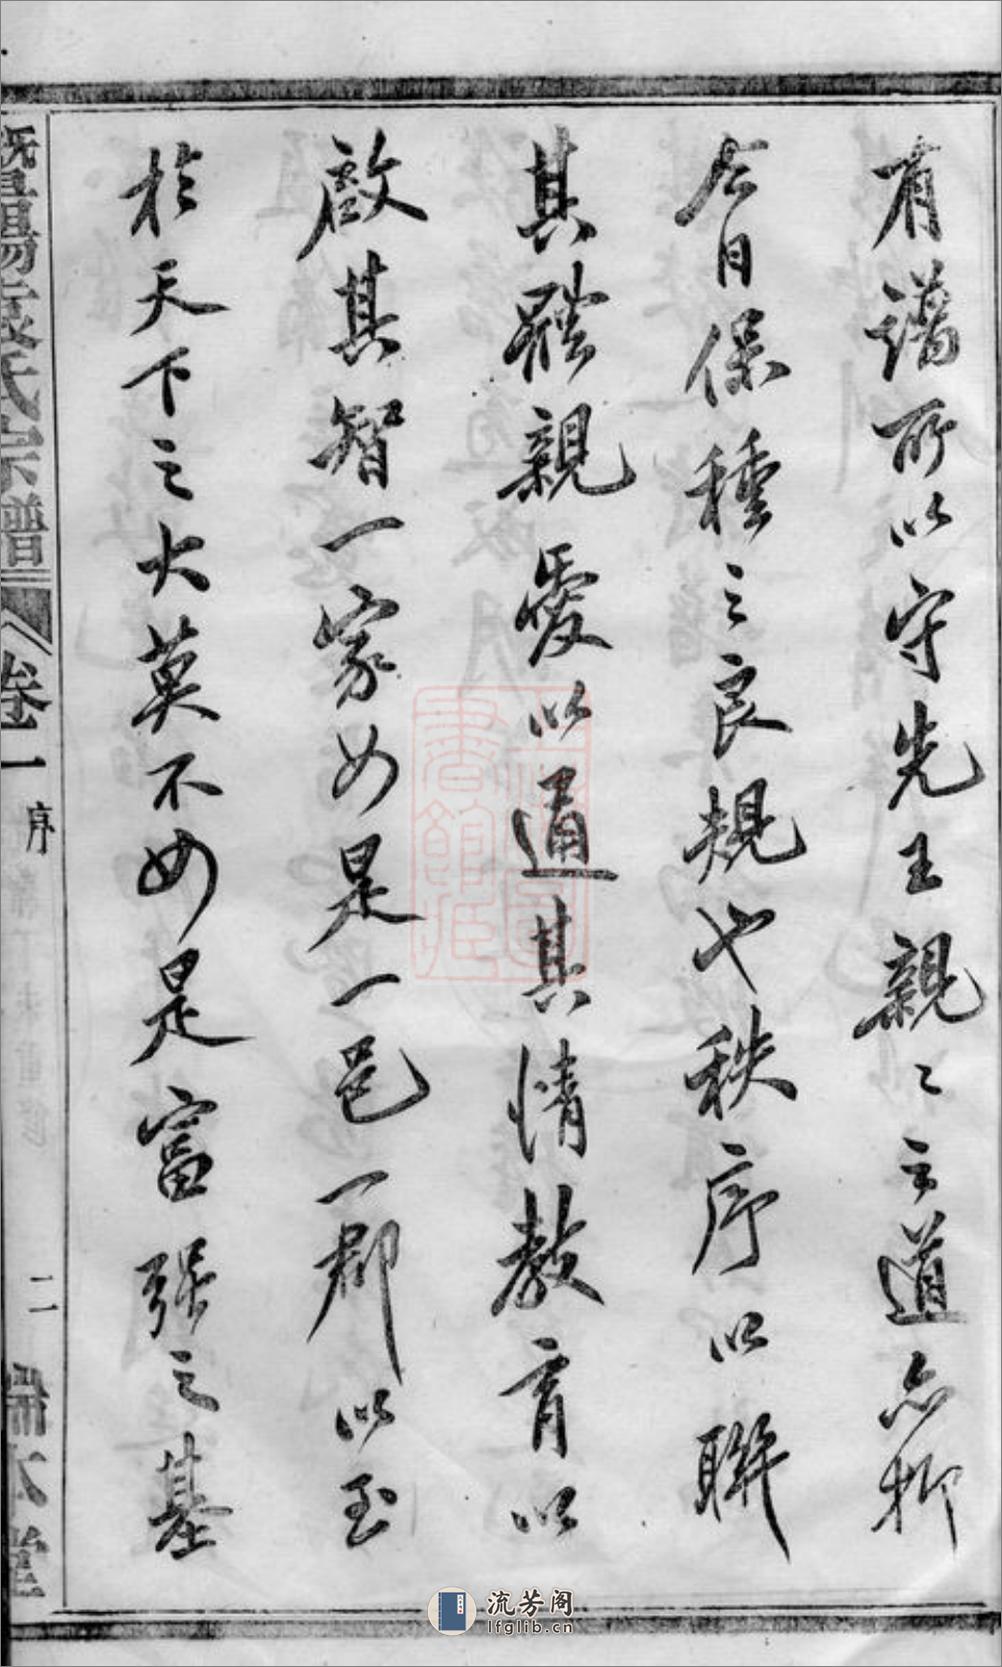 有譜所以守先王親〻之道亦抑
今日保種之良規也秩序以聯
其體親愛以通其情教育以
啟其智一家如是一邑一郡以至
於天下之大莫不如是富强之基
氏宗譜 卷一 序 二 堂
流芳阁
lfglib.cn